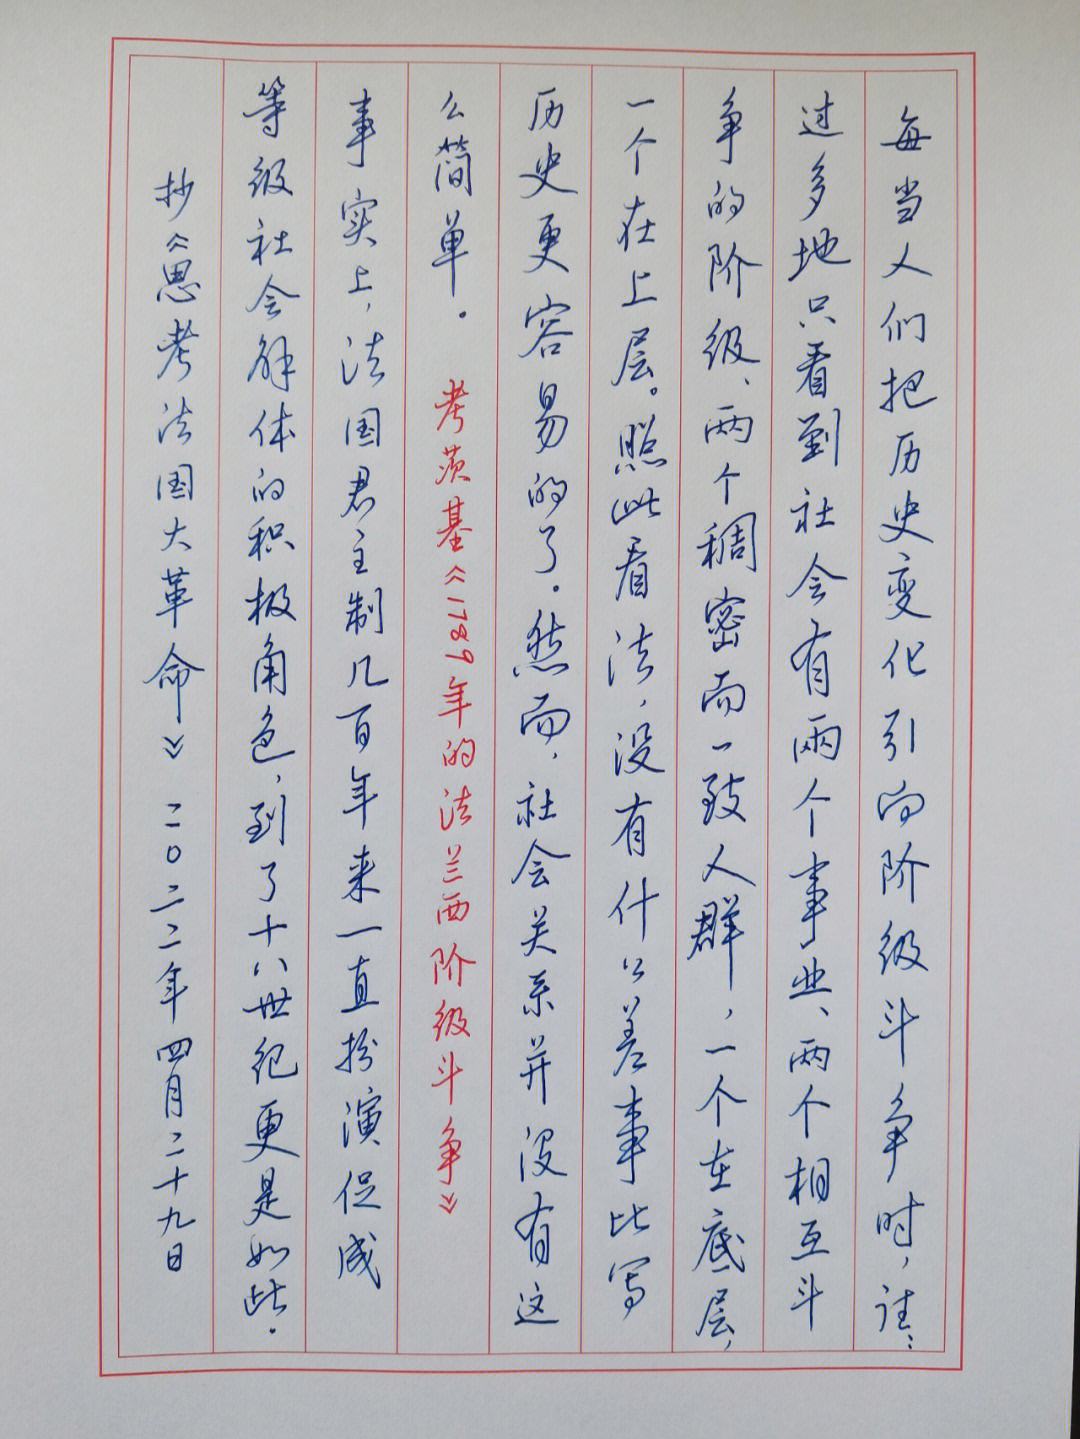 每当人们把历史变化引向阶级斗争时，往往
过多地只看到社会有两个事业、两个相互斗
争的阶级、两个稠密而一致人群，一个在底层，
一个在上层。照此看法，没有什么差事比写
历史更容易的了。然而，社会关系并没有这
么简单。 考茨基《1789年的法兰西阶级斗争》
事实上，法国君主制几百年来一直扮演促成
等级社会解体的积极角色，到了十八世纪更是如此。
抄《思考法国大革命》 二〇二二年四月二十九日